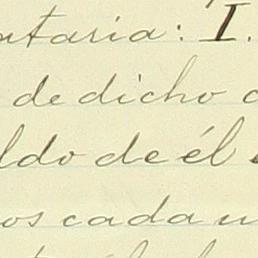 ntaria: I.
de dicho
ldo de él
os cada u